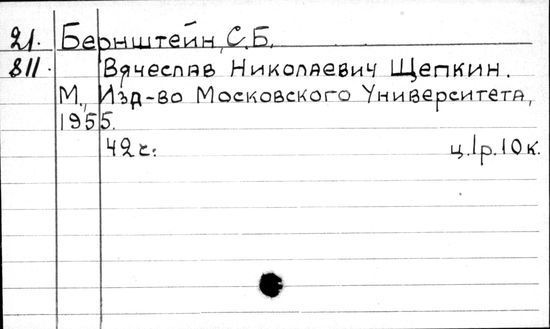 21. Бернштейн, С.Б.
811. Вячеслав Николаевич Щепкин.
М., Изд-во Московского Университета,
1955.
42 с. ц.1р.10к.